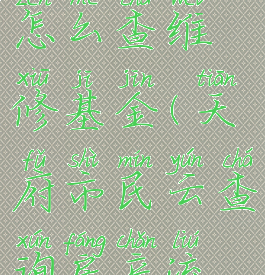 zěn me chá wéi
怎么查维
xiū jī jīn tiān
修基金(天
fǔ shì mín yún chá
府市民云查
xún fáng chǎn liú
询房产流